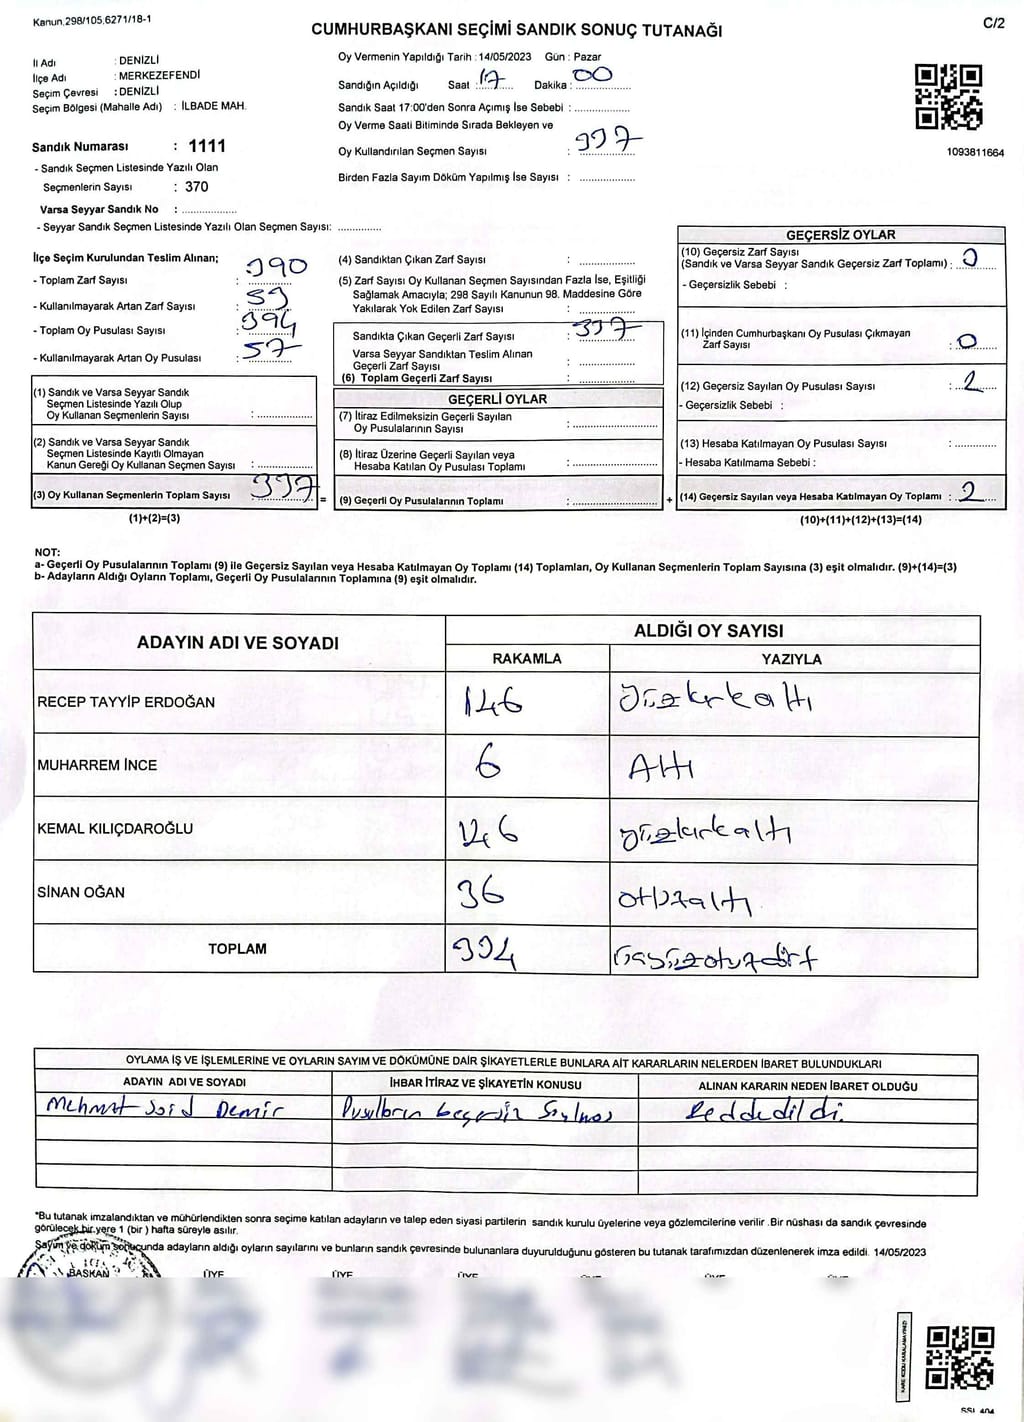 Kanun.298/105.6271/18-1
C/2
CUMHURBAŞKANI SEÇİMİ SANDIK SONUÇ TUTANAĞI
İl Adı : DENİZLİ
İlçe Adı : MERKEZEFENDİ
Seçim Çevresi : DENİZLİ
Seçim Bölgesi (Mahalle Adı) : İLBADE MAH.
Sandık Numarası : 1111
- Sandık Seçmen Listesinde Yazılı Olan
Seçmenlerin Sayısı : 370
Varsa Seyyar Sandık No :
- Seyyar Sandık Seçmen Listesinde Yazılı Olan Seçmen Sayısı:
Oy Vermenin Yapıldığı Tarih : 14/05/2023 Gün : Pazar
Sandığın Açıldığı Saat : 17 Dakika : 00
Sandık Saat 17:00'den Sonra Açımış İse Sebebi :
Oy Verme Saati Bitiminde Sırada Bekleyen ve
Oy Kullandırılan Seçmen Sayısı : 337
Birden Fazla Sayım Döküm Yapılmış İse Sayısı :
1093811664
İlçe Seçim Kurulundan Teslim Alınan;
- Toplam Zarf Sayısı : 390
- Kullanılmayarak Artan Zarf Sayısı : 53
- Toplam Oy Pusulası Sayısı : 394
- Kullanılmayarak Artan Oy Pusulası : 57
(1) Sandık ve Varsa Seyyar Sandık
Seçmen Listesinde Yazılı Olup
Oy Kullanan Seçmenlerin Sayısı :
(2) Sandık ve Varsa Seyyar Sandık
Seçmen Listesinde Kayıtlı Olmayan
Kanun Gereği Oy Kullanan Seçmen Sayısı :
(3) Oy Kullanan Seçmenlerin Toplam Sayısı : 337 =
(1)+(2)=(3)
(4) Sandıktan Çıkan Zarf Sayısı :
(5) Zarf Sayısı Oy Kullanan Seçmen Sayısından Fazla İse, Eşitliği
Sağlamak Amacıyla; 298 Sayılı Kanunun 98. Maddesine Göre
Yakılarak Yok Edilen Zarf Sayısı :
Sandıkta Çıkan Geçerli Zarf Sayısı : 337
Varsa Seyyar Sandıktan Teslim Alınan
Geçerli Zarf Sayısı :
(6) Toplam Geçerli Zarf Sayısı :
GEÇERLİ OYLAR
(7) İtiraz Edilmeksizin Geçerli Sayılan
Oy Pusulalarının Sayısı :
(8) İtiraz Üzerine Geçerli Sayılan veya
Hesaba Katılan Oy Pusulası Toplamı :
(9) Geçerli Oy Pusulalarının Toplamı : +
GEÇERSİZ OYLAR
(10) Geçersiz Zarf Sayısı
(Sandık ve Varsa Seyyar Sandık Geçersiz Zarf Toplamı) : 0
- Geçersizlik Sebebi :
(11) İçinden Cumhurbaşkanı Oy Pusulası Çıkmayan
Zarf Sayısı : 0
(12) Geçersiz Sayılan Oy Pusulası Sayısı : 2
- Geçersizlik Sebebi :
(13) Hesaba Katılmayan Oy Pusulası Sayısı :
- Hesaba Katılmama Sebebi :
(14) Geçersiz Sayılan veya Hesaba Katılmayan Oy Toplamı : 2
(10)+(11)+(12)+(13)=(14)
NOT:
a- Geçerli Oy Pusulalarının Toplamı (9) ile Geçersiz Sayılan veya Hesaba Katılmayan Oy Toplamı (14) Toplamları, Oy Kullanan Seçmenlerin Toplam Sayısına (3) eşit olmalıdır. (9)+(14)=(3)
b- Adayların Aldığı Oyların Toplamı, Geçerli Oy Pusulalarının Toplamına (9) eşit olmalıdır.
ADAYIN ADI VE SOYADI ALDIĞI OY SAYISI
RAKAMLA YAZIYLA
RECEP TAYYİP ERDOĞAN 146 yüzkırkaltı
MUHARREM İNCE 6 Altı
KEMAL KILIÇDAROĞLU 146 yüzkırkaltı
SİNAN OĞAN 36 otuzaltı
TOPLAM 334
OYLAMA İŞ VE İŞLEMLERİNE VE OYLARIN SAYIM VE DÖKÜMÜNE DAİR ŞİKAYETLERLE BUNLARA AİT KARARLARIN NELERDEN İBARET BULUNDUKLARI
ADAYIN ADI VE SOYADI İHBAR İTİRAZ VE ŞİKAYETİN KONUSU ALINAN KARARIN NEDEN İBARET OLDUĞU
Mehmet Said Demir Reddedildi.
"Bu tutanak imzalandıktan ve mühürlendikten sonra seçime katılan adayların ve talep eden siyasi partilerin sandık kurulu üyelerine veya gözlemcilerine verilir .Bir nüshası da sandık çevresinde
görülecek bir yere 1 (bir ) hafta süreyle asılır.
Sayım ve döküm sonucunda adayların aldığı oyların sayılarını ve bunların sandık çevresinde bulunanlara duyurulduğunu gösteren bu tutanak tarafımızdan düzenlenerek imza edildi. 14/05/2023
BAŞKAN ÜYE ÜYE ÜYE
KARE KODU KARALAMAYINIZ!